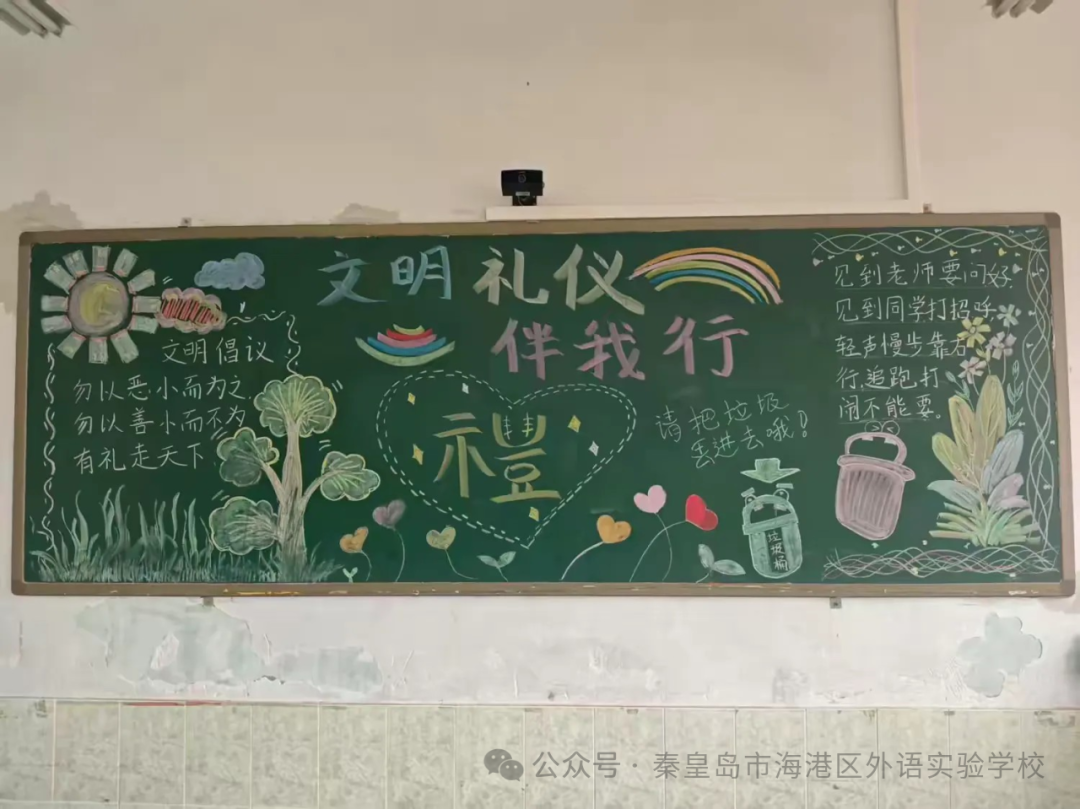 文明礼仪
伴我行
文明倡议
勿以恶小而为之,
勿以善小而不为
有礼走天下
禮
请把垃圾
丢进去哦!
垃圾桶
见到老师要问好
见到同学打招呼
轻声慢步靠右
行,追跑打
闹不能要。
公众号·秦皇岛市海港区外语实验学校